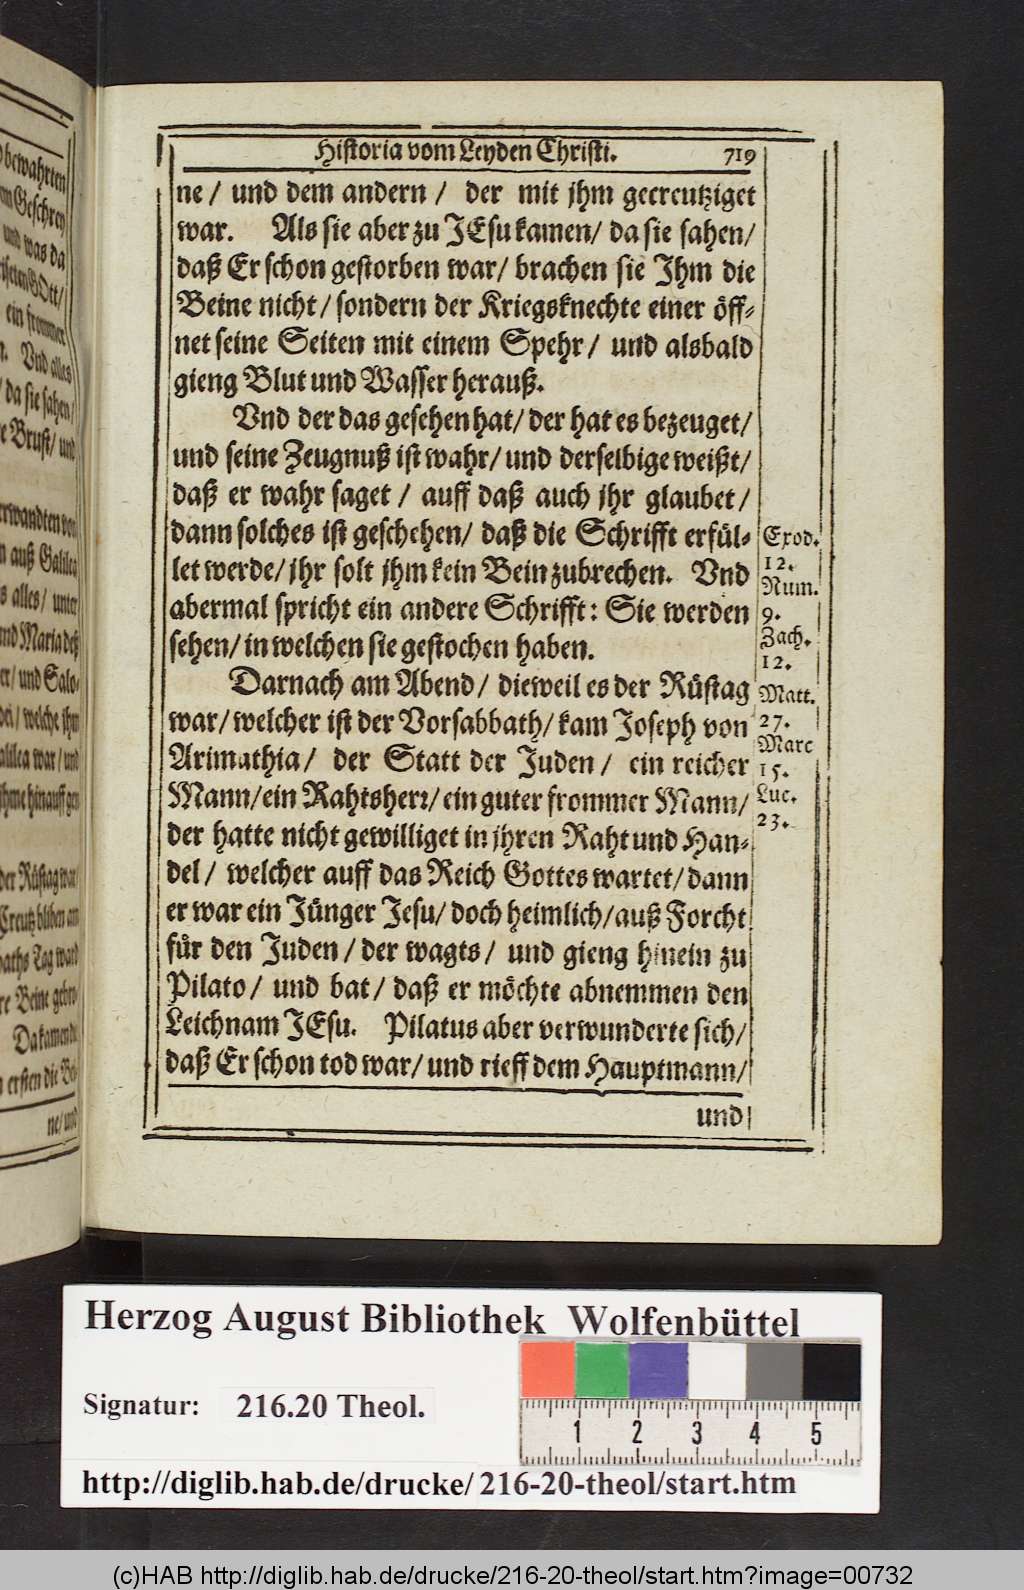 bewahrten
Geschrey
und was da
GOtt/
ein frommer
Vnd alles
da sie sahen/
Brust/ und
verwandten von
auß Galilea
alles/ unter
und Maria deß
und Salo-
welche ihm
Galilea war/ und
hinauff gen
der Rüstag war/
Creutz bliben am
Tag ward
Beine gebro-
Da kamen di
ersten die Bei-
ne/ und
Historia vom Leyden Christi. 719
ne/ und dem andern/ der mit jhm gecreutziget
war. Als sie aber zu JEsu kamen/ da sie sahen/
daß Er schon gestorben war/ brachen sie Ihm die
Beine nicht/ sondern der Kriegsknechte einer öff-
net seine Seiten mit einem Spehr/ und alsbald
gieng Blut und Wasser herauß.
Vnd der das gesehen hat/ der hat es bezeuget/
und seine Zeugnuß ist wahr/ und derselbige weißt/
daß er wahr saget/ auff daß auch jhr glaubet/
dann solches ist geschehen/ daß die Schrifft erfül-
let werde/ jhr solt jhm kein Bein zubrechen. Vnd
abermal spricht ein andere Schrifft: Sie werden
sehen/ in welchen sie gestochen haben.
Darnach am Abend/ dieweil es der Rüstag
war/ welcher ist der Vorsabbath/ kam Joseph von
Arimathia/ der Statt der Juden/ ein reicher
Mann/ ein Rahtsherr/ ein guter frommer Mann/
der hatte nicht gewilliget in jhren Raht und Han-
del/ welcher auff das Reich Gottes wartet/ dann
er war ein Jünger Jesu/ doch heimlich/ auß Forcht
für den Juden/ der wagts/ und gieng hinein zu
Pilato/ und bat/ daß er möchte abnemmen den
Leichnam JEsu. Pilatus aber verwunderte sich/
daß Er schon tod war/ und rieff dem Hauptmann/
und
Exod.
12.
Num.
9.
Zach.
12.
Matt.
27.
Marc
15.
Luc.
23.
Herzog August Bibliothek Wolfenbüttel
Signatur: 216.20 Theol.
1 2 3 4 5
http://diglib.hab.de/drucke/216-20-theol/start.htm
(c)HAB http://diglib.hab.de/drucke/216-20-theol/start.htm?image=00732